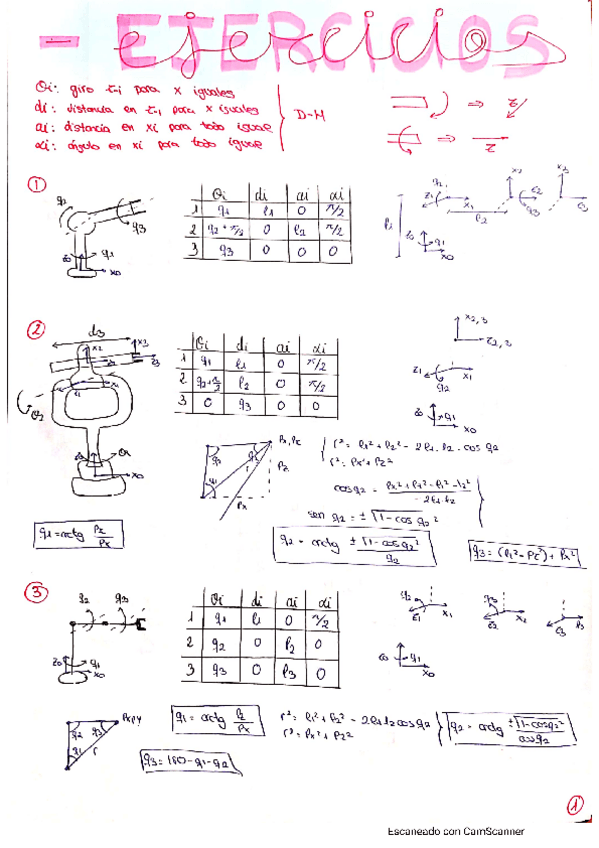 - EJERCICIOS
ejercicios
θi: giro zi-1 para x iguales
di: distancia en zi-1 para x iguales
ai: distancia en xi para todo igual
αi: ángulo en xi para todo igual
D-H
⇒ z
⇒ z
①
q2
q3
z0 q1
x0
θi di ai αi
1 q1 l1 0 π/2
2 q2+π/2 0 l2 π/2
3 q3 0 0 0
q2
z1 x1
l2
l1
z0 q1
x0
x2
z2
q3
x3
z3
②
d3
x2 x3
z3
θ2
θ1
x0
θi di ai αi
1 q1 l1 0 π/2
2 q2+π/2 l2 0 π/2
3 0 q3 0 0
x2,3
z2,3
z1 x1
q2
z0 q1
x0
q3 q2 Px,Pz
q1 r Pz
Px
r² = l1² + l2² - 2l1.l2.cos q2
r² = Px² + Pz²
cos q2 = Px²+Pz²-l1²-l2² / -2l1.l2
sen q2 = ±√1-cos q2²
q1 = arctg Pz/Px
q2 = arctg ±√1-cos q2² / q2
q3 = (Pz²-Pz²) + Px²
③
q2 q3
z0 q1
x0
θi di ai αi
1 q1 l1 0 π/2
2 q2 0 l2 0
3 q3 0 l3 0
q2
z1 x1
q3
z2 x2
z3
z0 q1
x0
Px,Py
q2 q3
q1 r
q1 = arctg Pz/Px
r² = l1² + l2² - 2l1l2cosq2
r² = Px² + Pz²
q2 = arctg ±√1-cosq2² / cosq2
q3 = 180 - q1 - q2
①
Escaneado con CamScanner